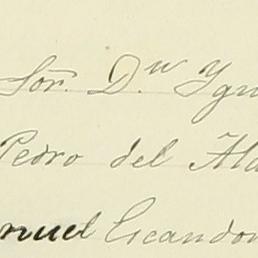 Sor. D.n Ygn
Pedro del Ala
nuel Escandon